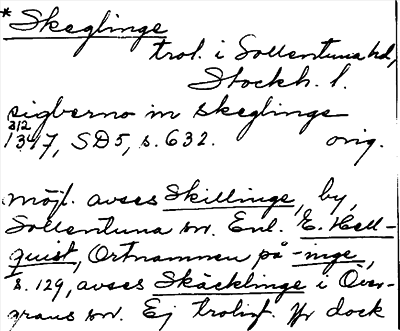 * Skeglinge
trol. i Sollentuna hd,
Stockh. l.
sigberno in skeglinge
3/2
1347, SD5, s. 632. orig.
möjl. avses Skillinge, by,
Sollentuna sn. Enl. E. Hell-
quist, Ortnamnen på -inge,
s. 129, avses Skäcklinge i Över-
grans sn. Ej troligt. Yr dock